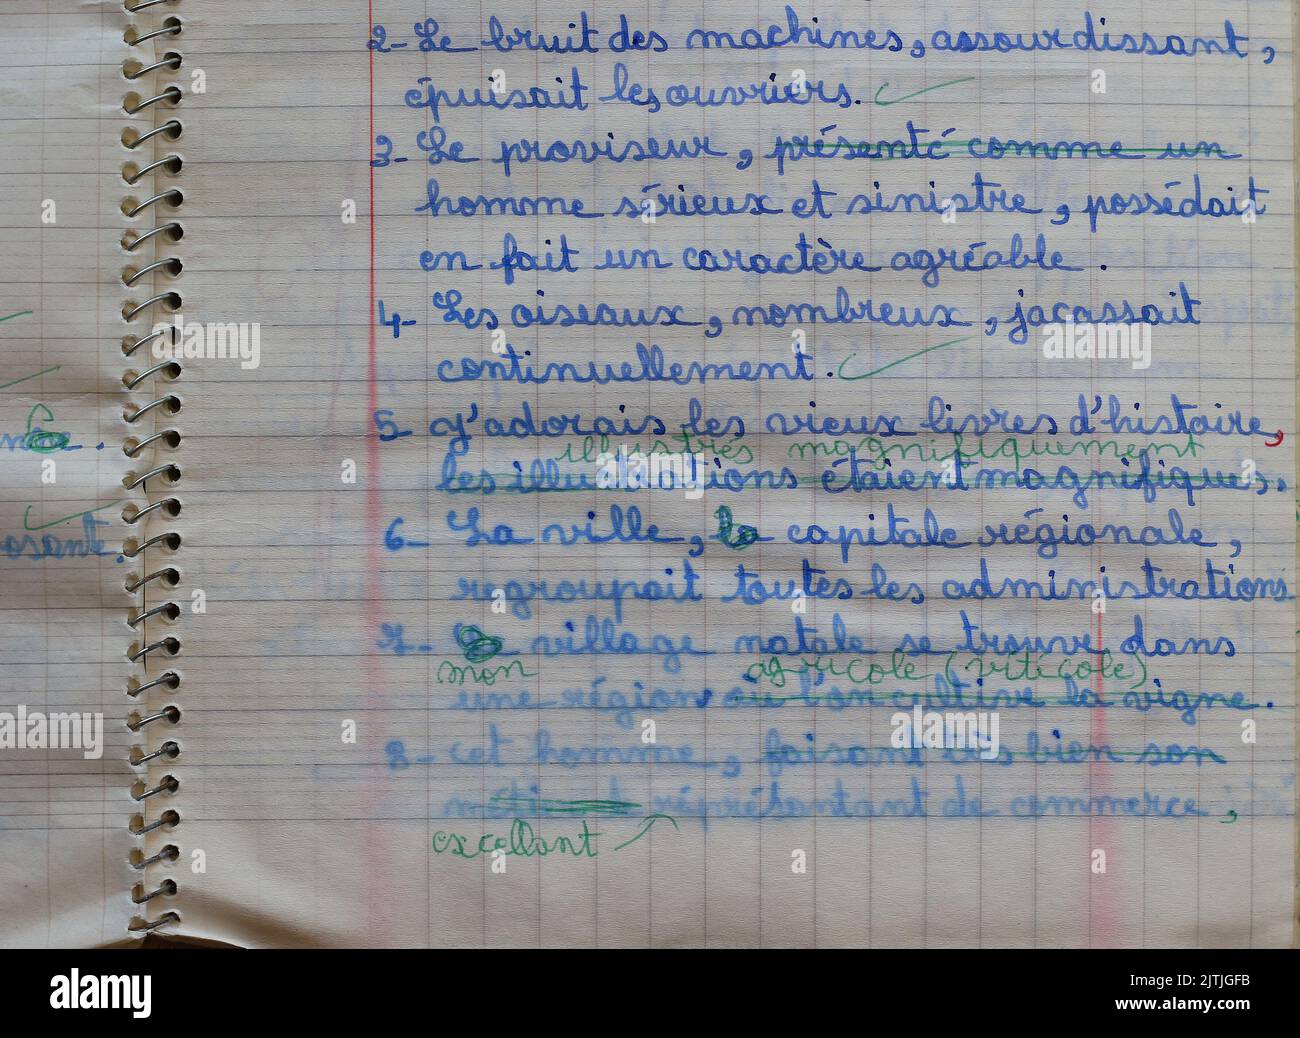 2- Le bruit des machines, assourdissant,
épuisait les ouvriers.
3- Le proviseur, présenté comme un
homme sérieux et sinistre, possédait
en fait un caractère agréable.
4- Les oiseaux, nombreux, jacassait
continuellement.
5- J'adorais les vieux livres d'histoire,
illustrés magnifiquement
les illustrations étaient magnifiques.
6- La ville, la capitale régionale,
regroupait toutes les administrations
7- village natale se trouve dans
mon agricole (viticole)
une région où l'on cultive la vigne.
8- cet homme, faisant très bien son
métier représantant de commerce,
excellant
osante.
alamy
Image ID: 2JTJGFB
www.alamy.com